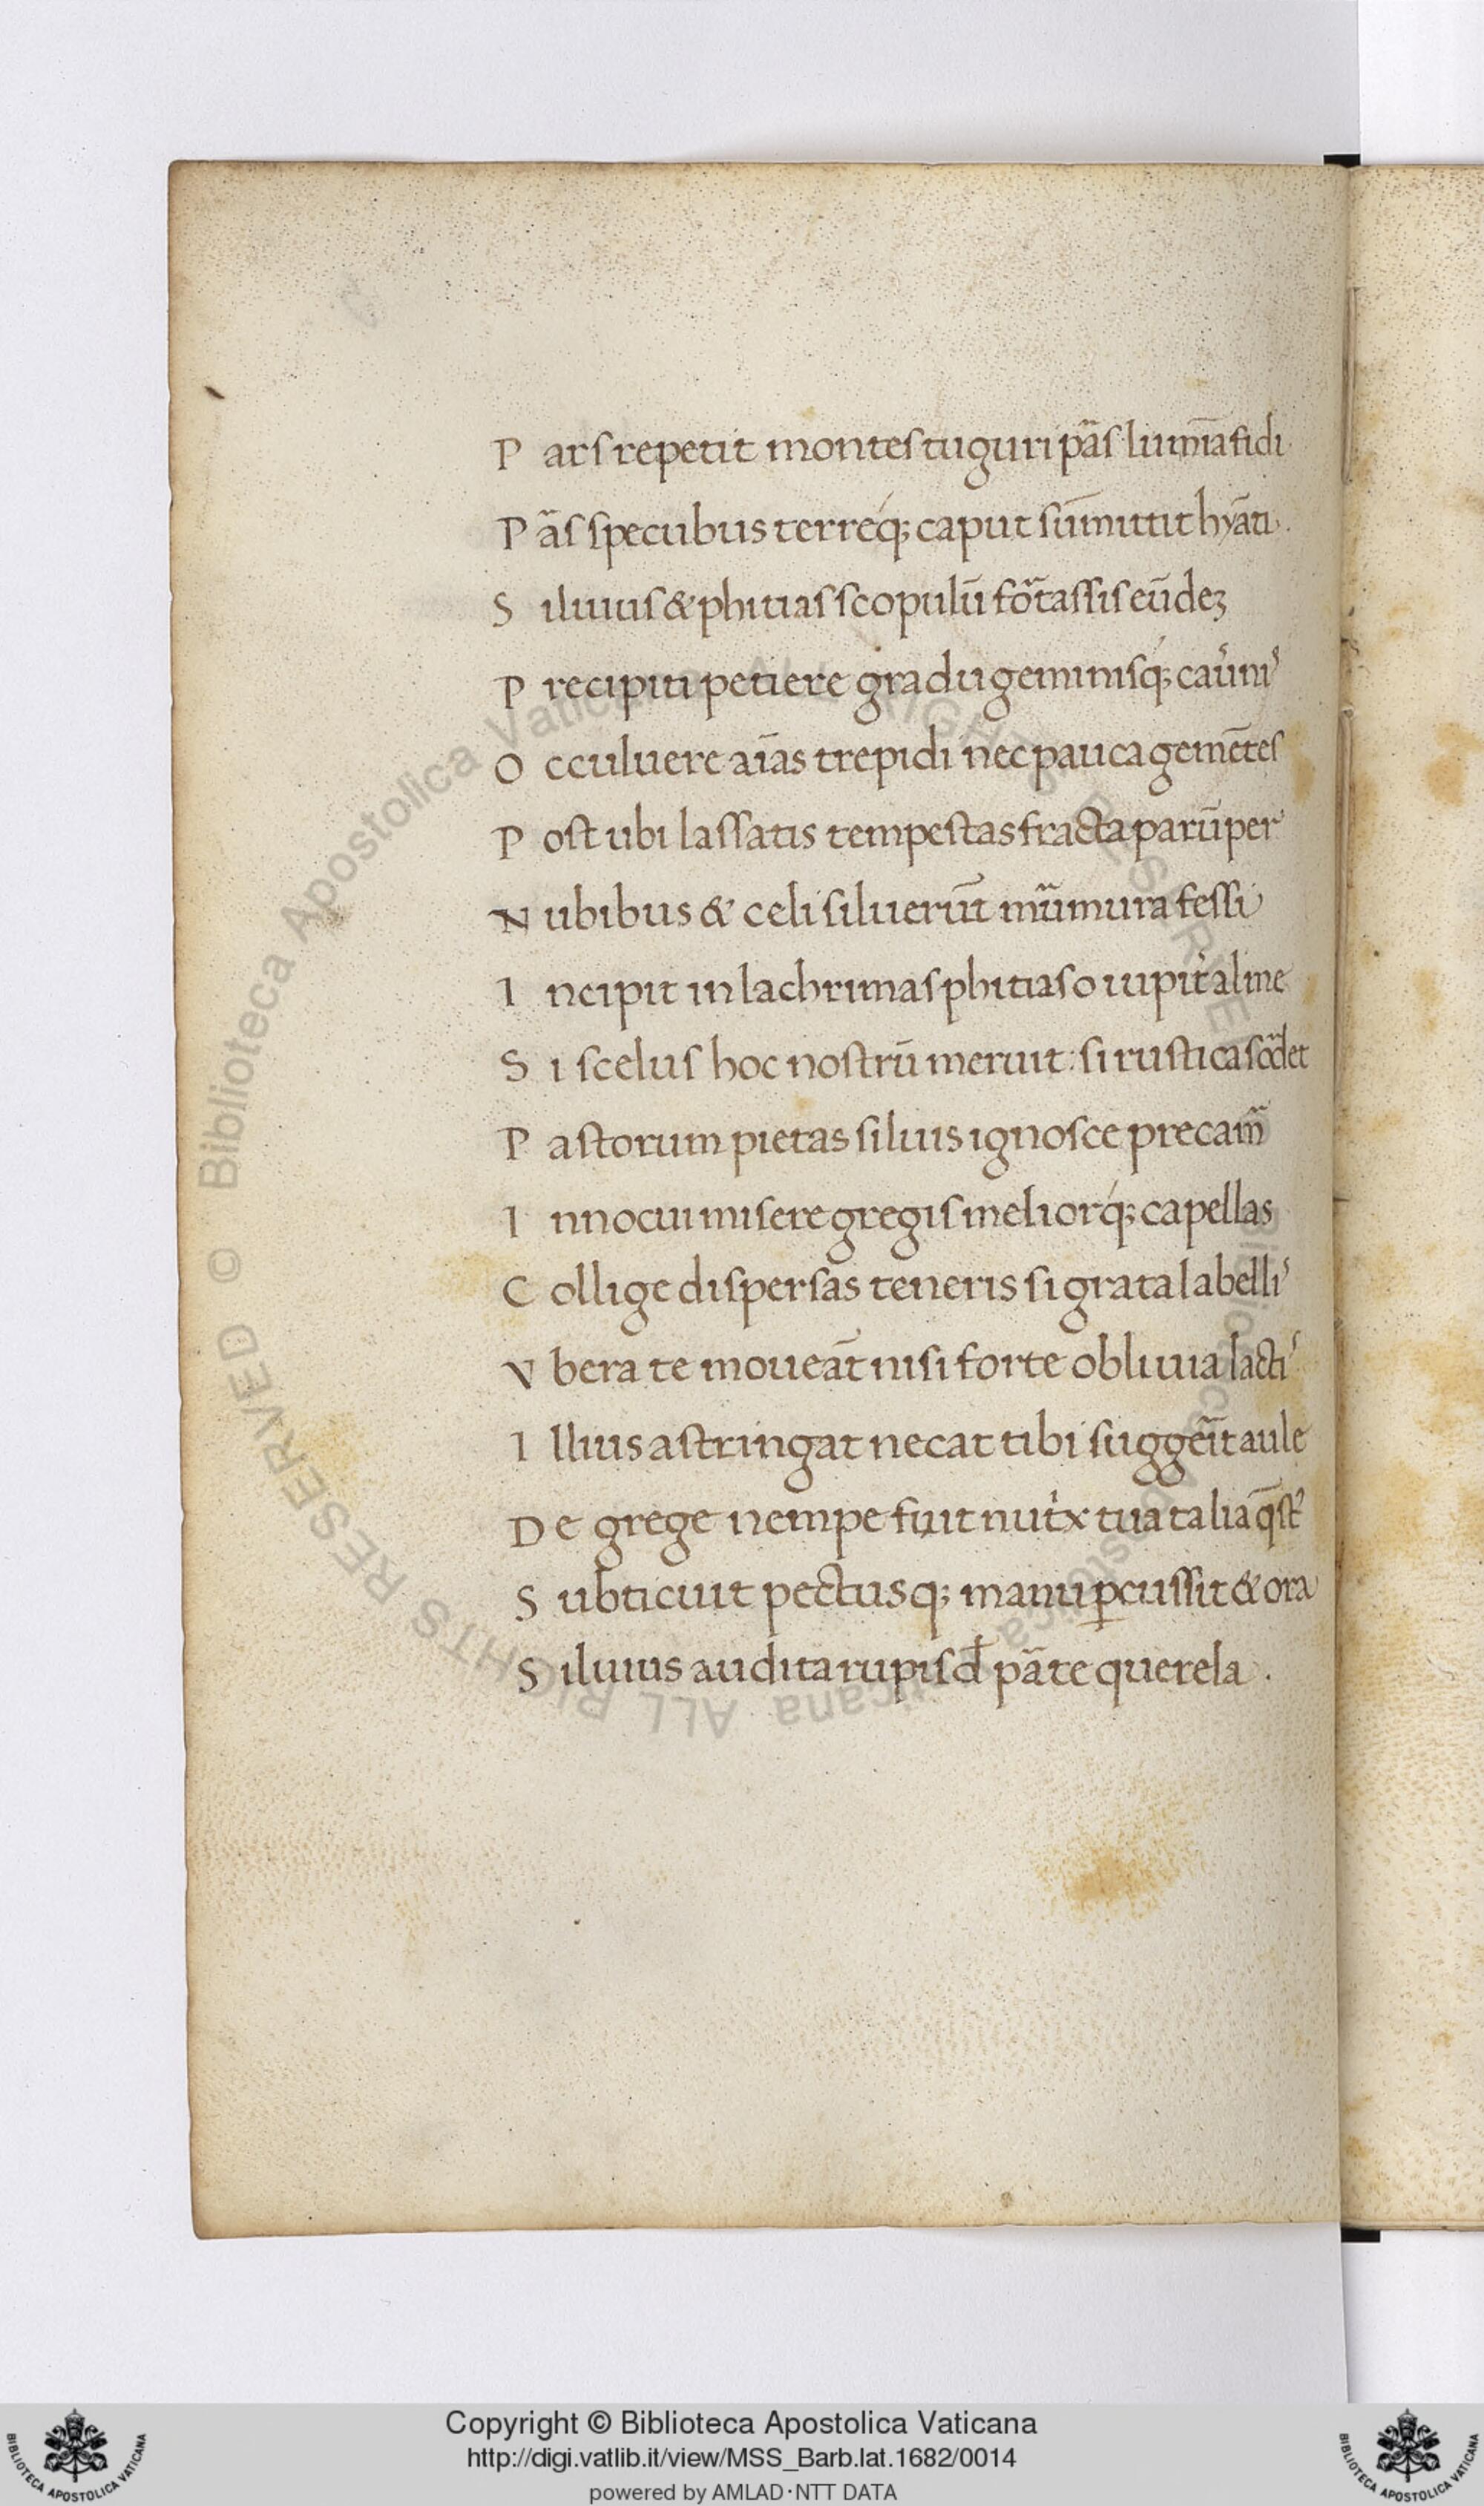 P ars repetit montes tuguri pãs limīa fidi
P ãs specubus terreq; caput sūmittit hyãti.
S iluius & phitias scopulū fõtassis eūdeʒ
P recipiti petiere gradu geminisq; cau̓niˢ
O cculuere aīas trepidi nec pauca gemētes
P ost ubi lassatis tempestas fracta parūper
N ubibus & celi siluerūt mũmura fessi
I ncipit in lachrimas phitias o iupit̓ alme
S i scelus hoc nostrū meruit: si rustica sõdet
P astorum pietas siluis ignosce precam̃
I nnocui misere gregis meliorq; capellas
C ollige dispersas teneris si grata labelliˢ
V bera te moueāt nisi forte obliuia lactiˢ
I llius astringat necat tibi suggeīt aule
D e grege nempe fuit nut̍x tua talia q̄stˀ
S ubticuit pectusq; manu ꝑcussit & ora
S iluius audita rupis đ pãte querela.
Copyright © Biblioteca Apostolica Vaticana
http://digi.vatlib.it/view/MSS_Barb.lat.1682/0014
powered by AMLAD·NTT DATA
BIBLIOTECA APOSTOLICA VATICANA
BIBLIOTECA APOSTOLICA VATICANA